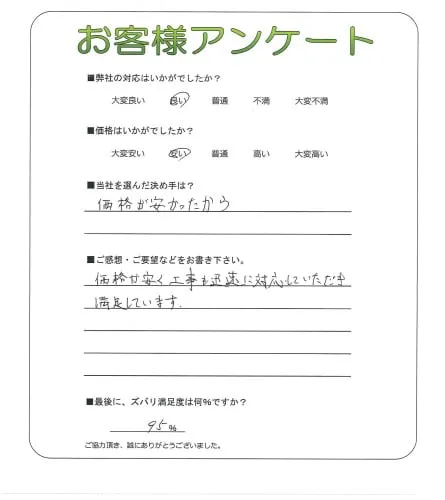 お客様アンケート
■弊社の対応はいかがでしたか？
大変良い 良い 普通 不満 大変不満
■価格はいかがでしたか？
大変安い 安い 普通 高い 大変高い
■当社を選んだ決め手は？
価格が安かったから
■ご感想・ご要望などをお書き下さい。
価格が安く工事も迅速に対応していただき
満足しています.
■最後に、ズバリ満足度は何%ですか？
95%
ご協力頂き、誠にありがとうございました。